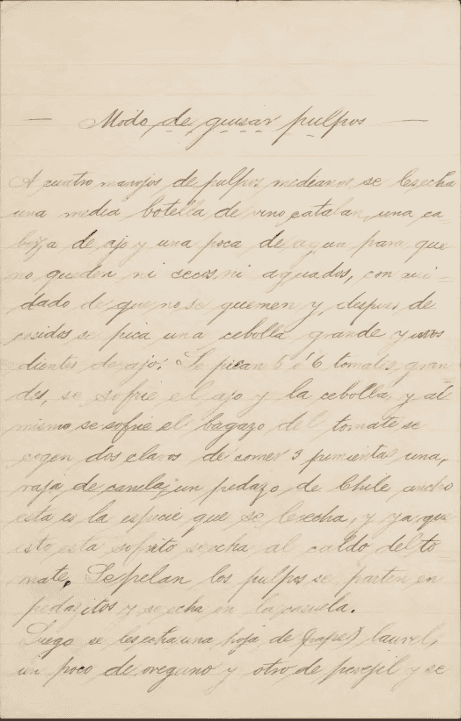 — Modo de guisar pulpos —
A cuatro manojos de pulpos medianos se les echa
una media botella de vino catalan, una ca
beza de ajo y una poca de agua para que
no queden ni secos ni aguados, con cui-
dado de que no se quemen y despues de
cosidos se pica una cebolla grande y unos
dientes de ajo. Se pican 5 ó 6 tomates gran
des, se sofrie el ajo y la cebolla, y al
mismo se sofrie el bagazo del tomate se
cogen dos clavos de comer 3 pimientas una,
raja de canela, un pedazo de Chile ancho
esta es la especie que se les echa, y ya que
esto esta sofrito se echa al caldo del to
mate. Se pelan los pulpos se parten en
pedazitos y se echa en la casuela.
Luego se les echa una hoja de laurel,
un poco de oregano y otro de perejil y se